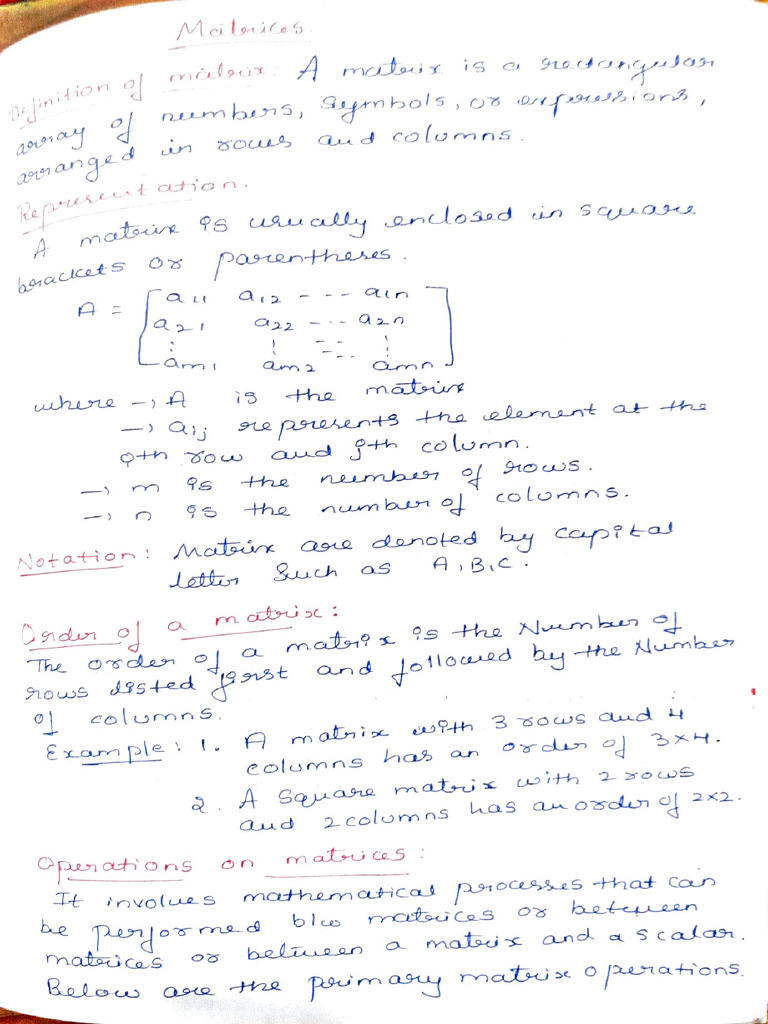 Matrices
Definition of matrix: A matrix is a rectangular
array of numbers, symbols, or expressions,
arranged in rows and columns.
Representation.
A matrix is usually enclosed in square
brackets or parentheses.
A = [ a11 a12 ---- a1n
a21 a22 ---- a2n
⋮ ⋮ ---- ⋮
am1 am2 amn ]
where → A is the matrix
→ aij represents the element at the
ith row and jth column.
→ m is the number of rows.
→ n is the number of columns.
Notation: Matrix are denoted by capital
letter such as A, B, C.
Order of a matrix:
The order of a matrix is the Number of
rows listed first and followed by the Number
of columns.
Example: 1. A matrix with 3 rows and 4
columns has an order of 3×4.
2. A square matrix with 2 rows
and 2 columns has an order of 2×2.
Operations on matrices:
It involves mathematical processes that can
be performed b/w matrices or between
matrices or between a matrix and a scalar.
Below are the primary matrix operations.